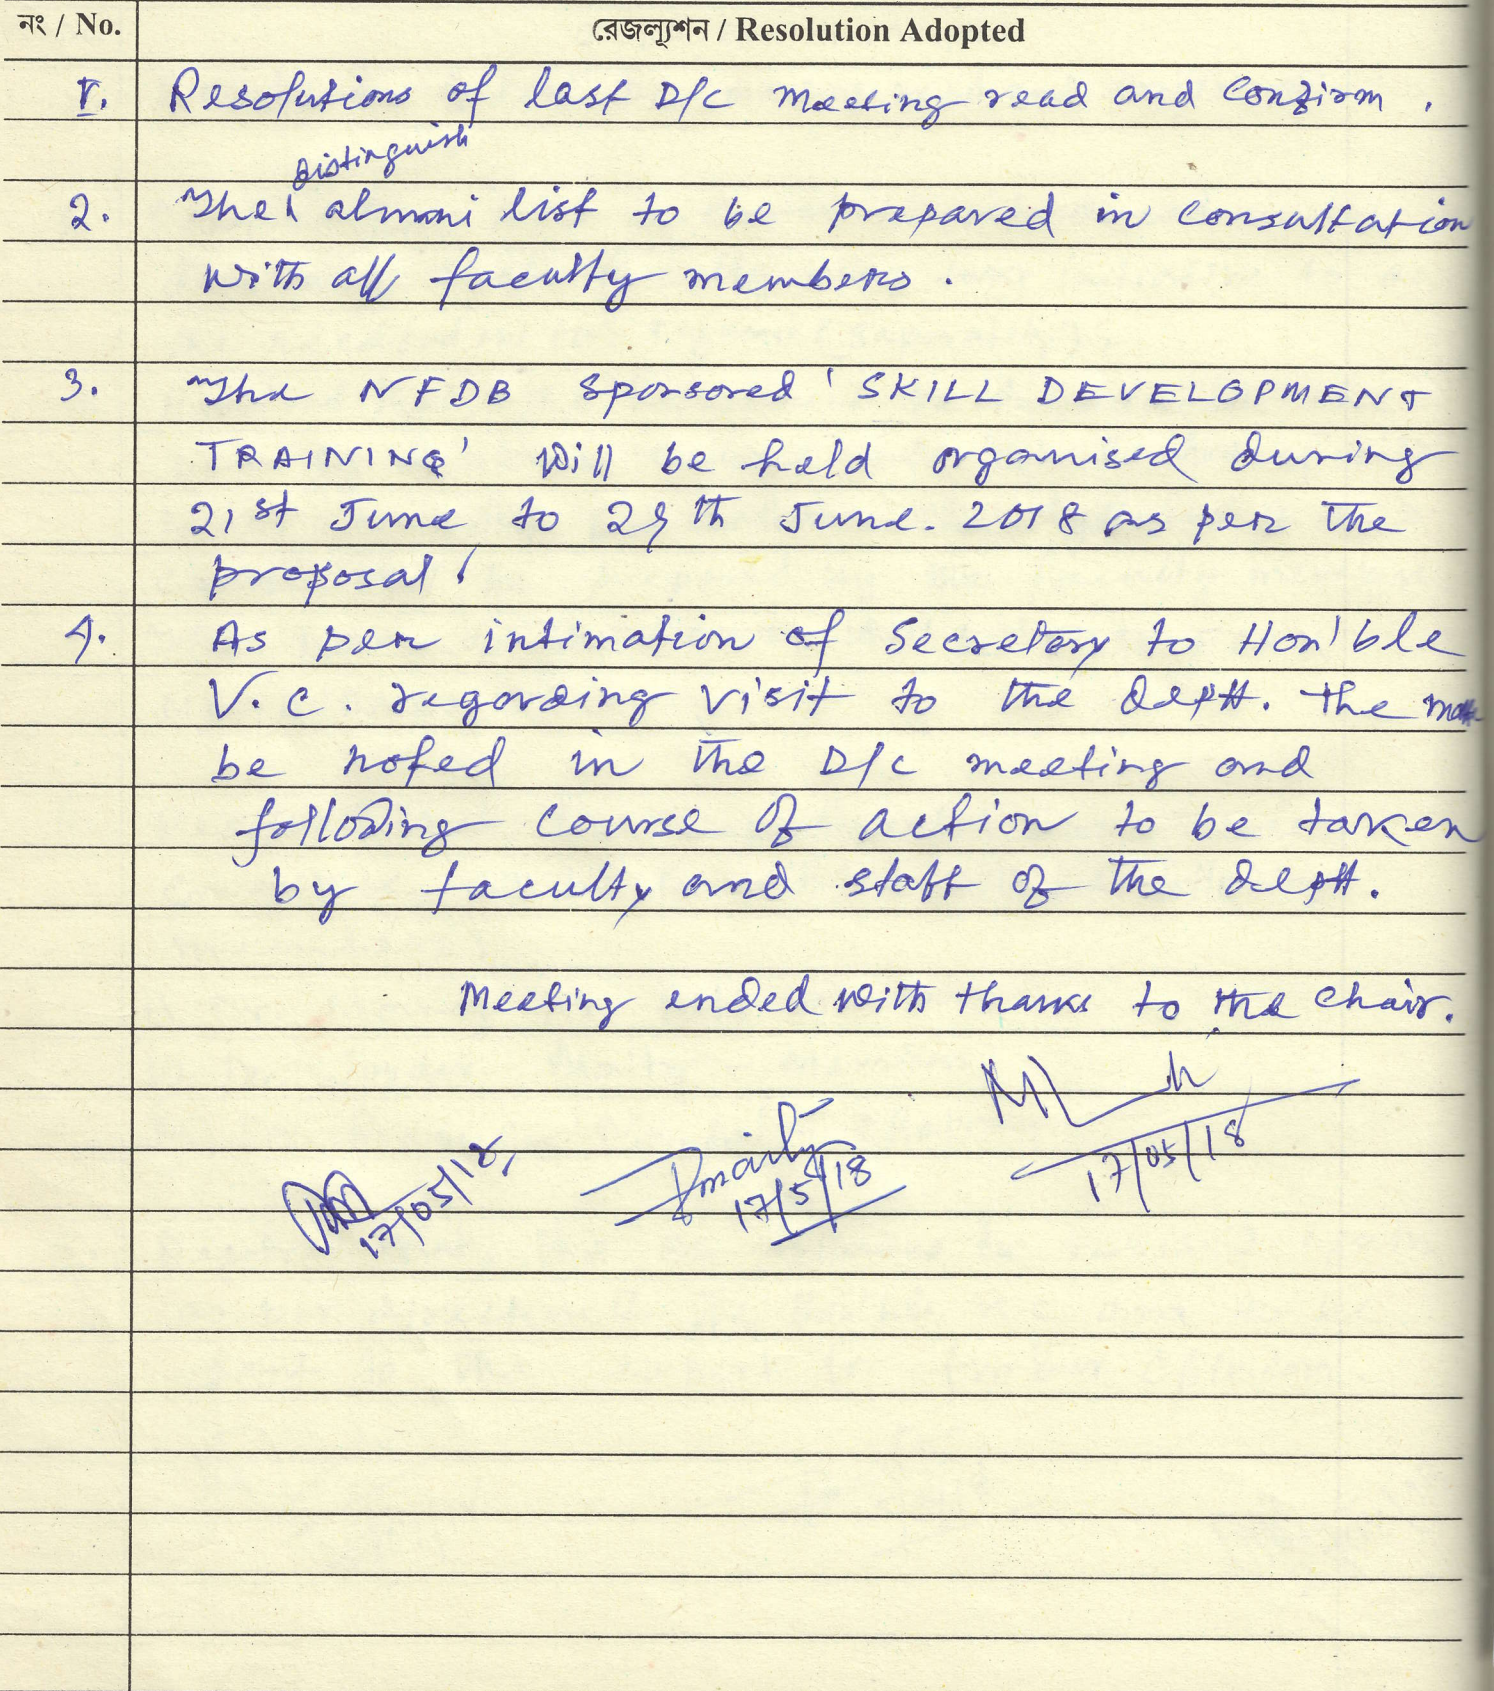 নং / No. রেজল্যুশন / Resolution Adopted
1. Resolutions of last D/C meeting read and confirm.
distinguish
2. The alumni list to be prepared in consultation
with all faculty members.
3. The NFDB sponsored 'SKILL DEVELOPMENT
TRAINING' will be held organised during
21st June to 29th June. 2018 as per the
proposal.
4. As per intimation of Secretary to Hon'ble
V.C. regarding visit to the deptt. The
be noted in the D/C meeting and
following course of action to be taken
by faculty and staff of the deptt.
Meeting ended with thanks to the chair.
17/05/18
17/5/18
17/05/18